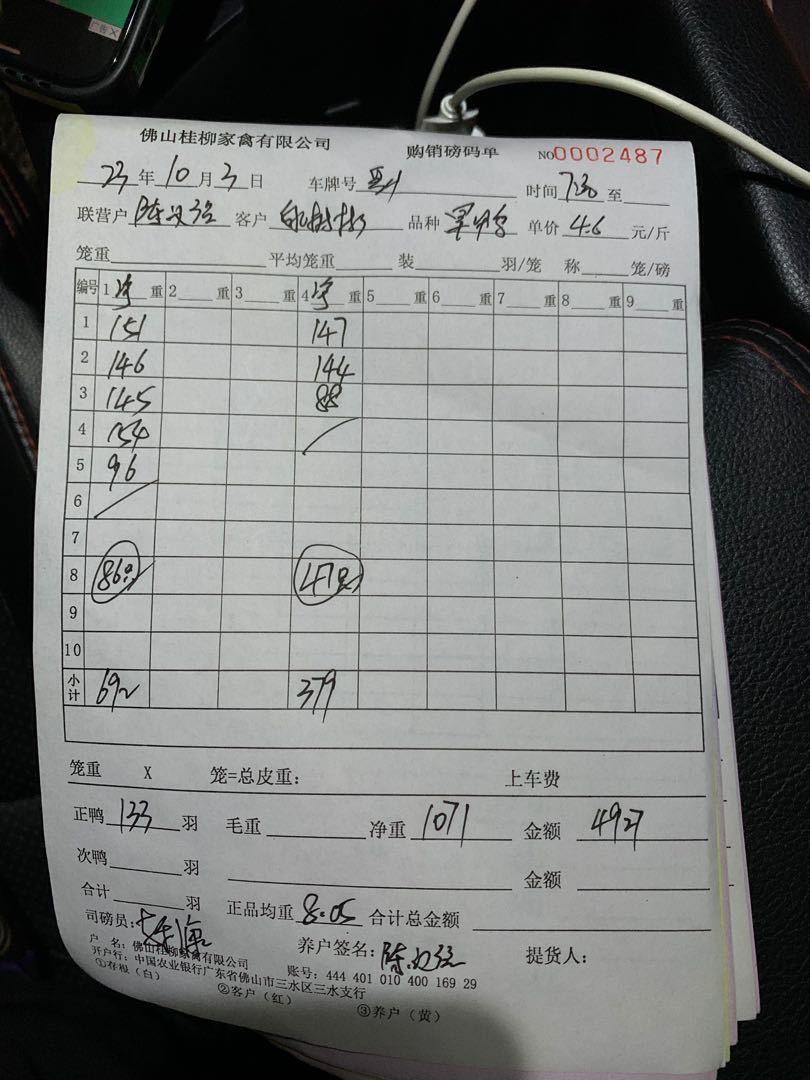 广告 X
佛山桂柳家禽有限公司 购销磅码单 NO0002487
23年10月3日 车牌号 时间 至
联营户 陈 客户 品种 单价 4.6 元/斤
笼重 平均笼重 装 羽/笼 称 笼/磅
编号 1 净 重 2 重 3 重 4 净 重 5 重 6 重 7 重 8 重 9 重
1 151 147
2 146 144
3 145 88
4 154
5 96
6
7
8 86 47
9
10
小计 692 379
笼重 X 笼=总皮重: 上车费
正鸭 133 羽 毛重 净重 1071 金额 4927
次鸭 羽 金额
合计 羽 正品均重 8.05 合计总金额
司磅员: 养户签名: 陈 提货人:
户 名: 佛山桂柳家禽有限公司
开户行: 中国农业银行广东省佛山市三水区三水支行 账号: 444 401 010 400 169 29
①存根(白) ②客户(红) ③养户(黄)